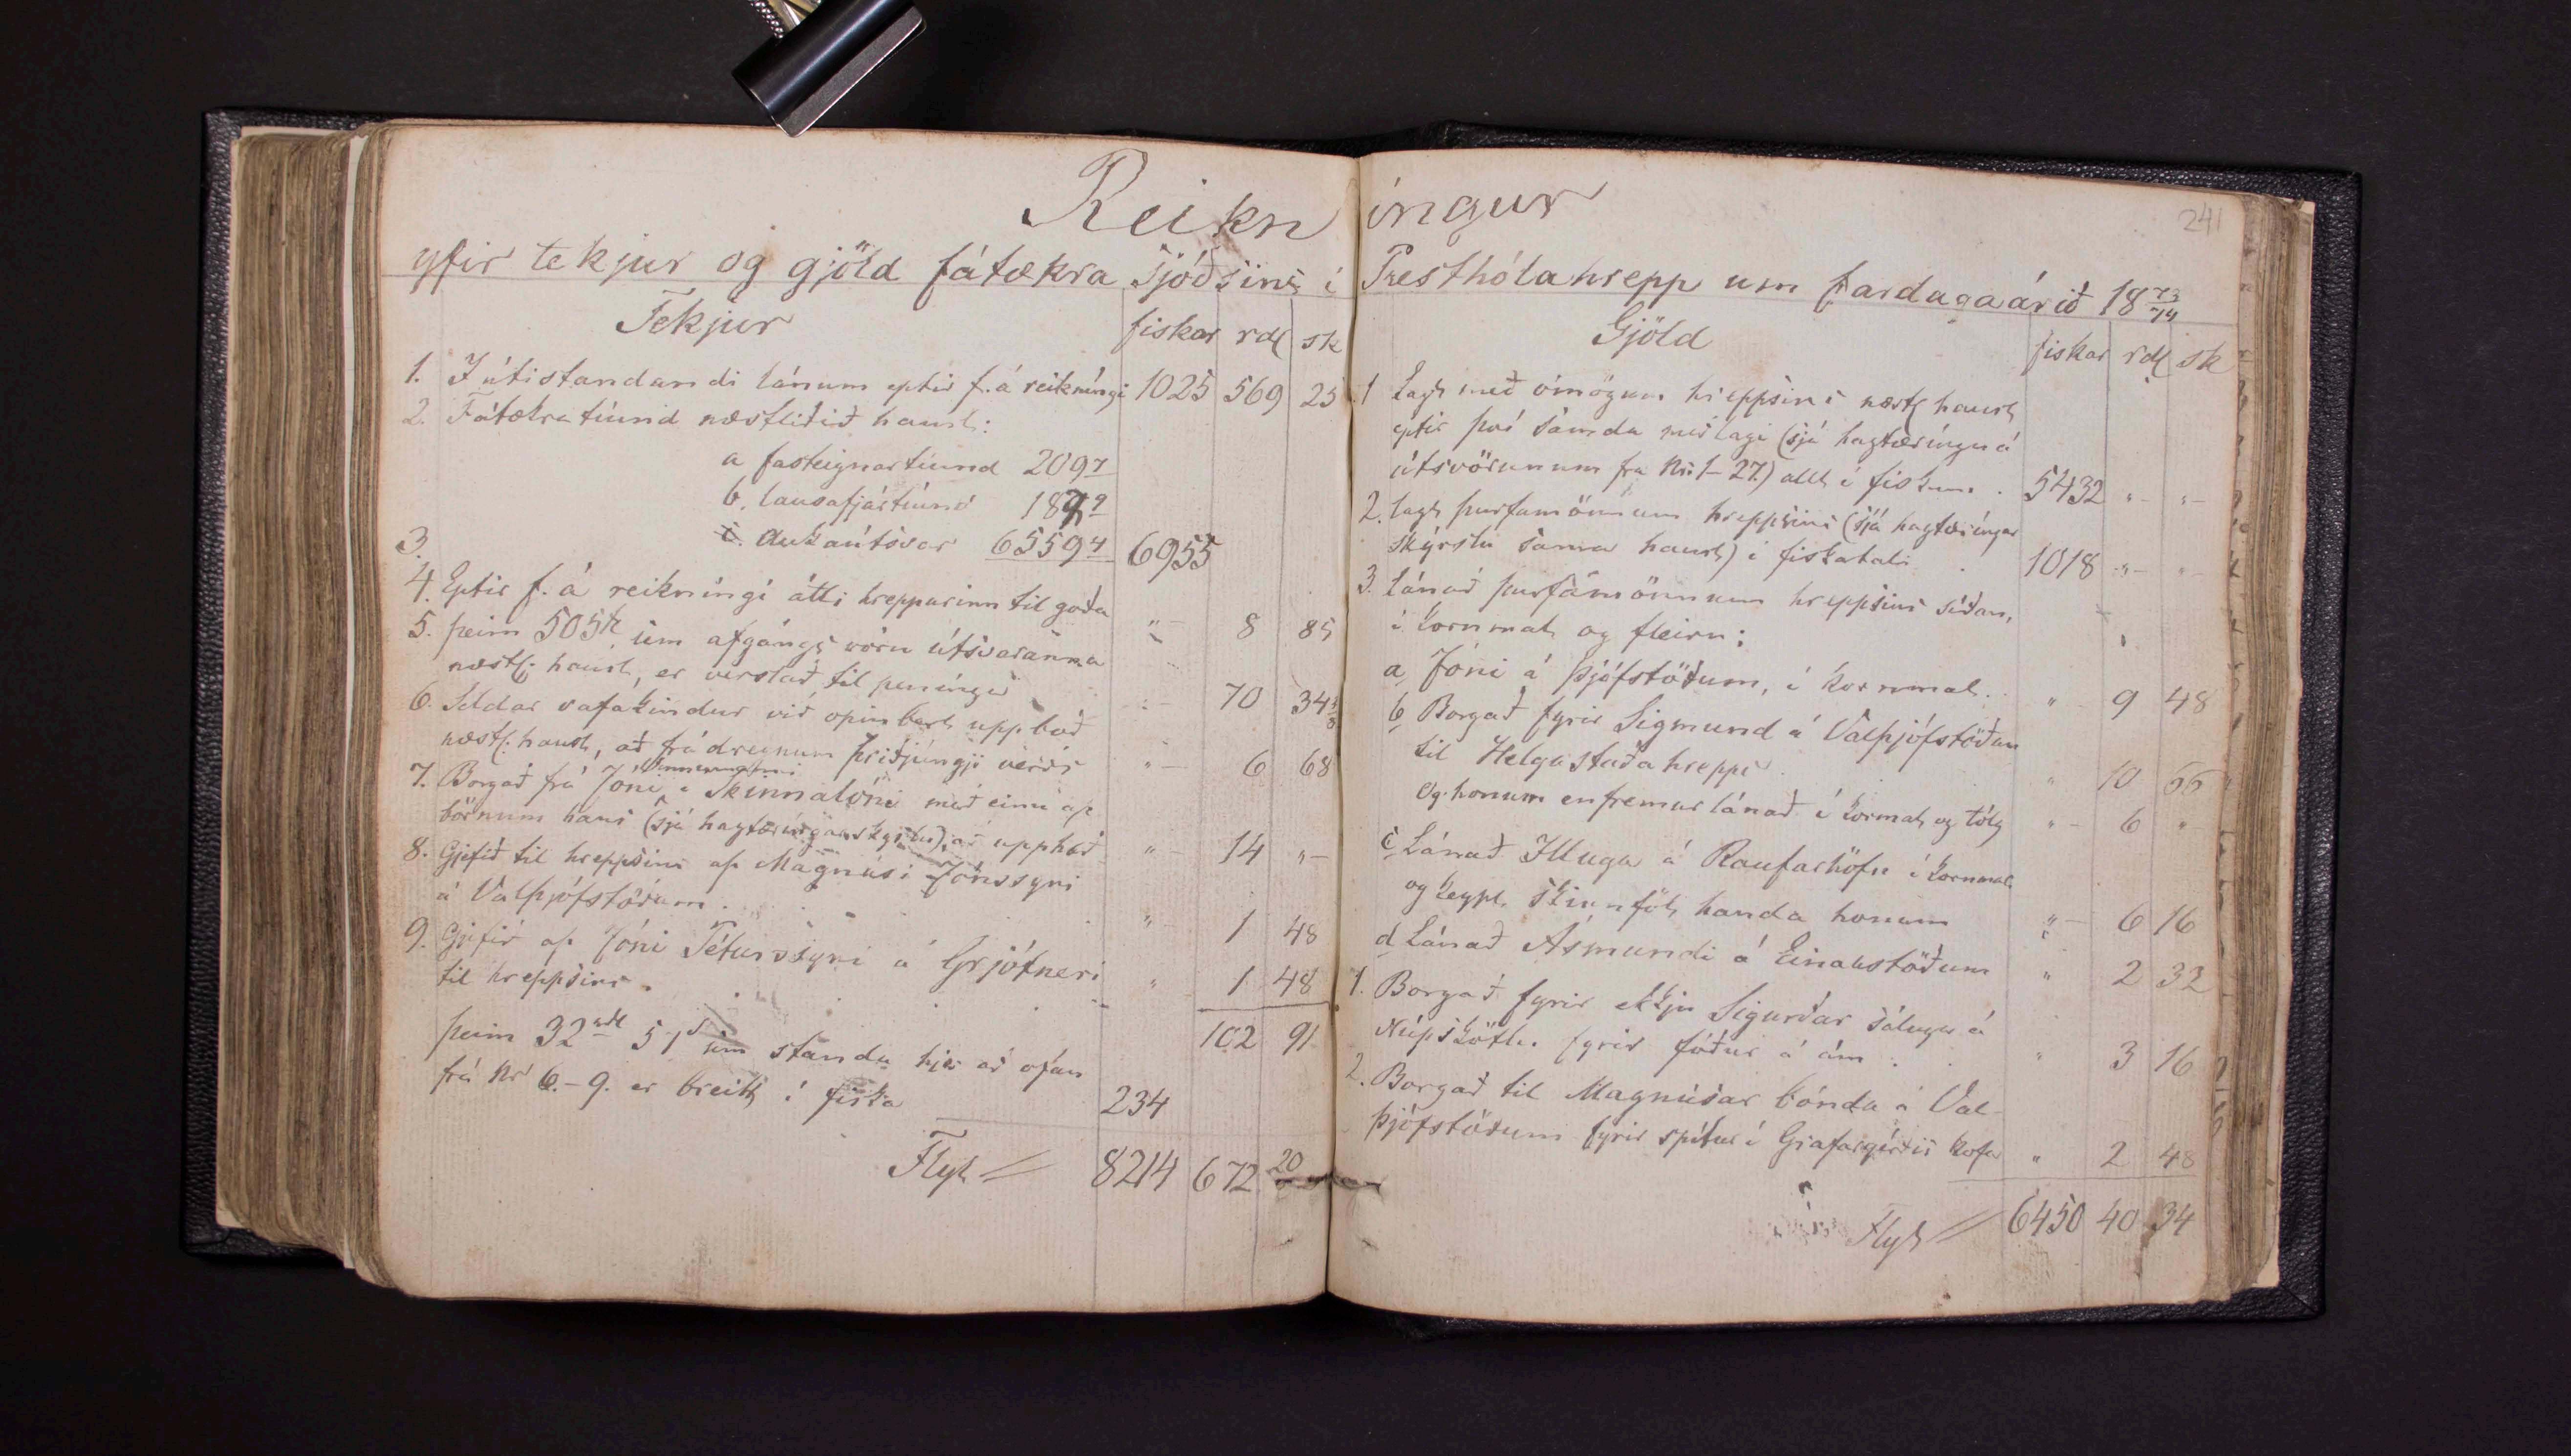 Reikníngur
241
yfir tekjur og gjöld fátækra sjóðsins í Presthólahrepp um fardagaárið 18 73/74
Tekjur fiskar rdl sk
1. Í útistandandi lánum eptir f. á reikníngi 1025 569 23
2. Fátækratíund næstliðið haust:
a fasteignartíund 209
b. lausafjártíund
3. c. Aukaútsvar 6559 6955
4. Eptir f. á reikníngi átti hreppurinn til goða „ 8 85
5. þeim 505 sem afgángs vóru útsvaranna
næstl. haust, er verslað til penínga „ 70 34
6. Seldar vafakindur við opinbert uppboð
næstl. haust, að frádregnum þriðjúngi verðs „ 6 68
7. Borgað frá Jóni vinnumanni á Skinnalóni með einu af
börnum hans (sjá hagtæríngarskyrslu), að upphæð „ 14 „
8. Gjefið til hreppsins af Magnúsi Jónssyni
á Valþjófstöðum. „ 1 48
9. Gjefið af Jóni Péturssyni á Grjótneri
til hreppsins. „ 1 48
102 91
þeim 32 rdl 51 sem standa hjer að ofan
frá Nr 6.-9. er breitt í fiska 234
Flyt 8214 672 20
Gjöld fiskar rdl sk
1 Lagt með ómögum hreppsins næstl haust
eptir því sömdu niðlagi (sjá hagtæríngu á
útsvörunum fra Nr: 1-27.) allt í fiskum. 5432 „ „
2. lagt þurfamönnum hreppsins (sjá hagtæríngar
skýrslu sama haust) í fiskatali 1018 „ „
3. lánað þurfamönnum hreppsins síðan,
í kornmat og fleiru:
a, Jóni á Þjófstöðum, í kornmat. „ 9 48
b Borgað fyrir Sigmund á Valþjófstöðum
til Helgastaðahrepps „ 10 66
Og honum enfremur lánað í kornmat og tólg „ 6 „
c Lánað Illuga á Raufarhöfn í kornmat
og keypt skinnföt handa honum „ 6 16
d Lánað Ásmundi á Einarstöðum „ 2 32
1. Borgað fyrir ekkju Sigurðar sáluga á
Núpskötlu fyrir fóður á ám. „ 3 16
2. Borgað til Magnúsar bónda á Val-
þjófstöðum fyrir spítur í Grafargérðis kofa „ 2 48
Flyt 6450 40 34